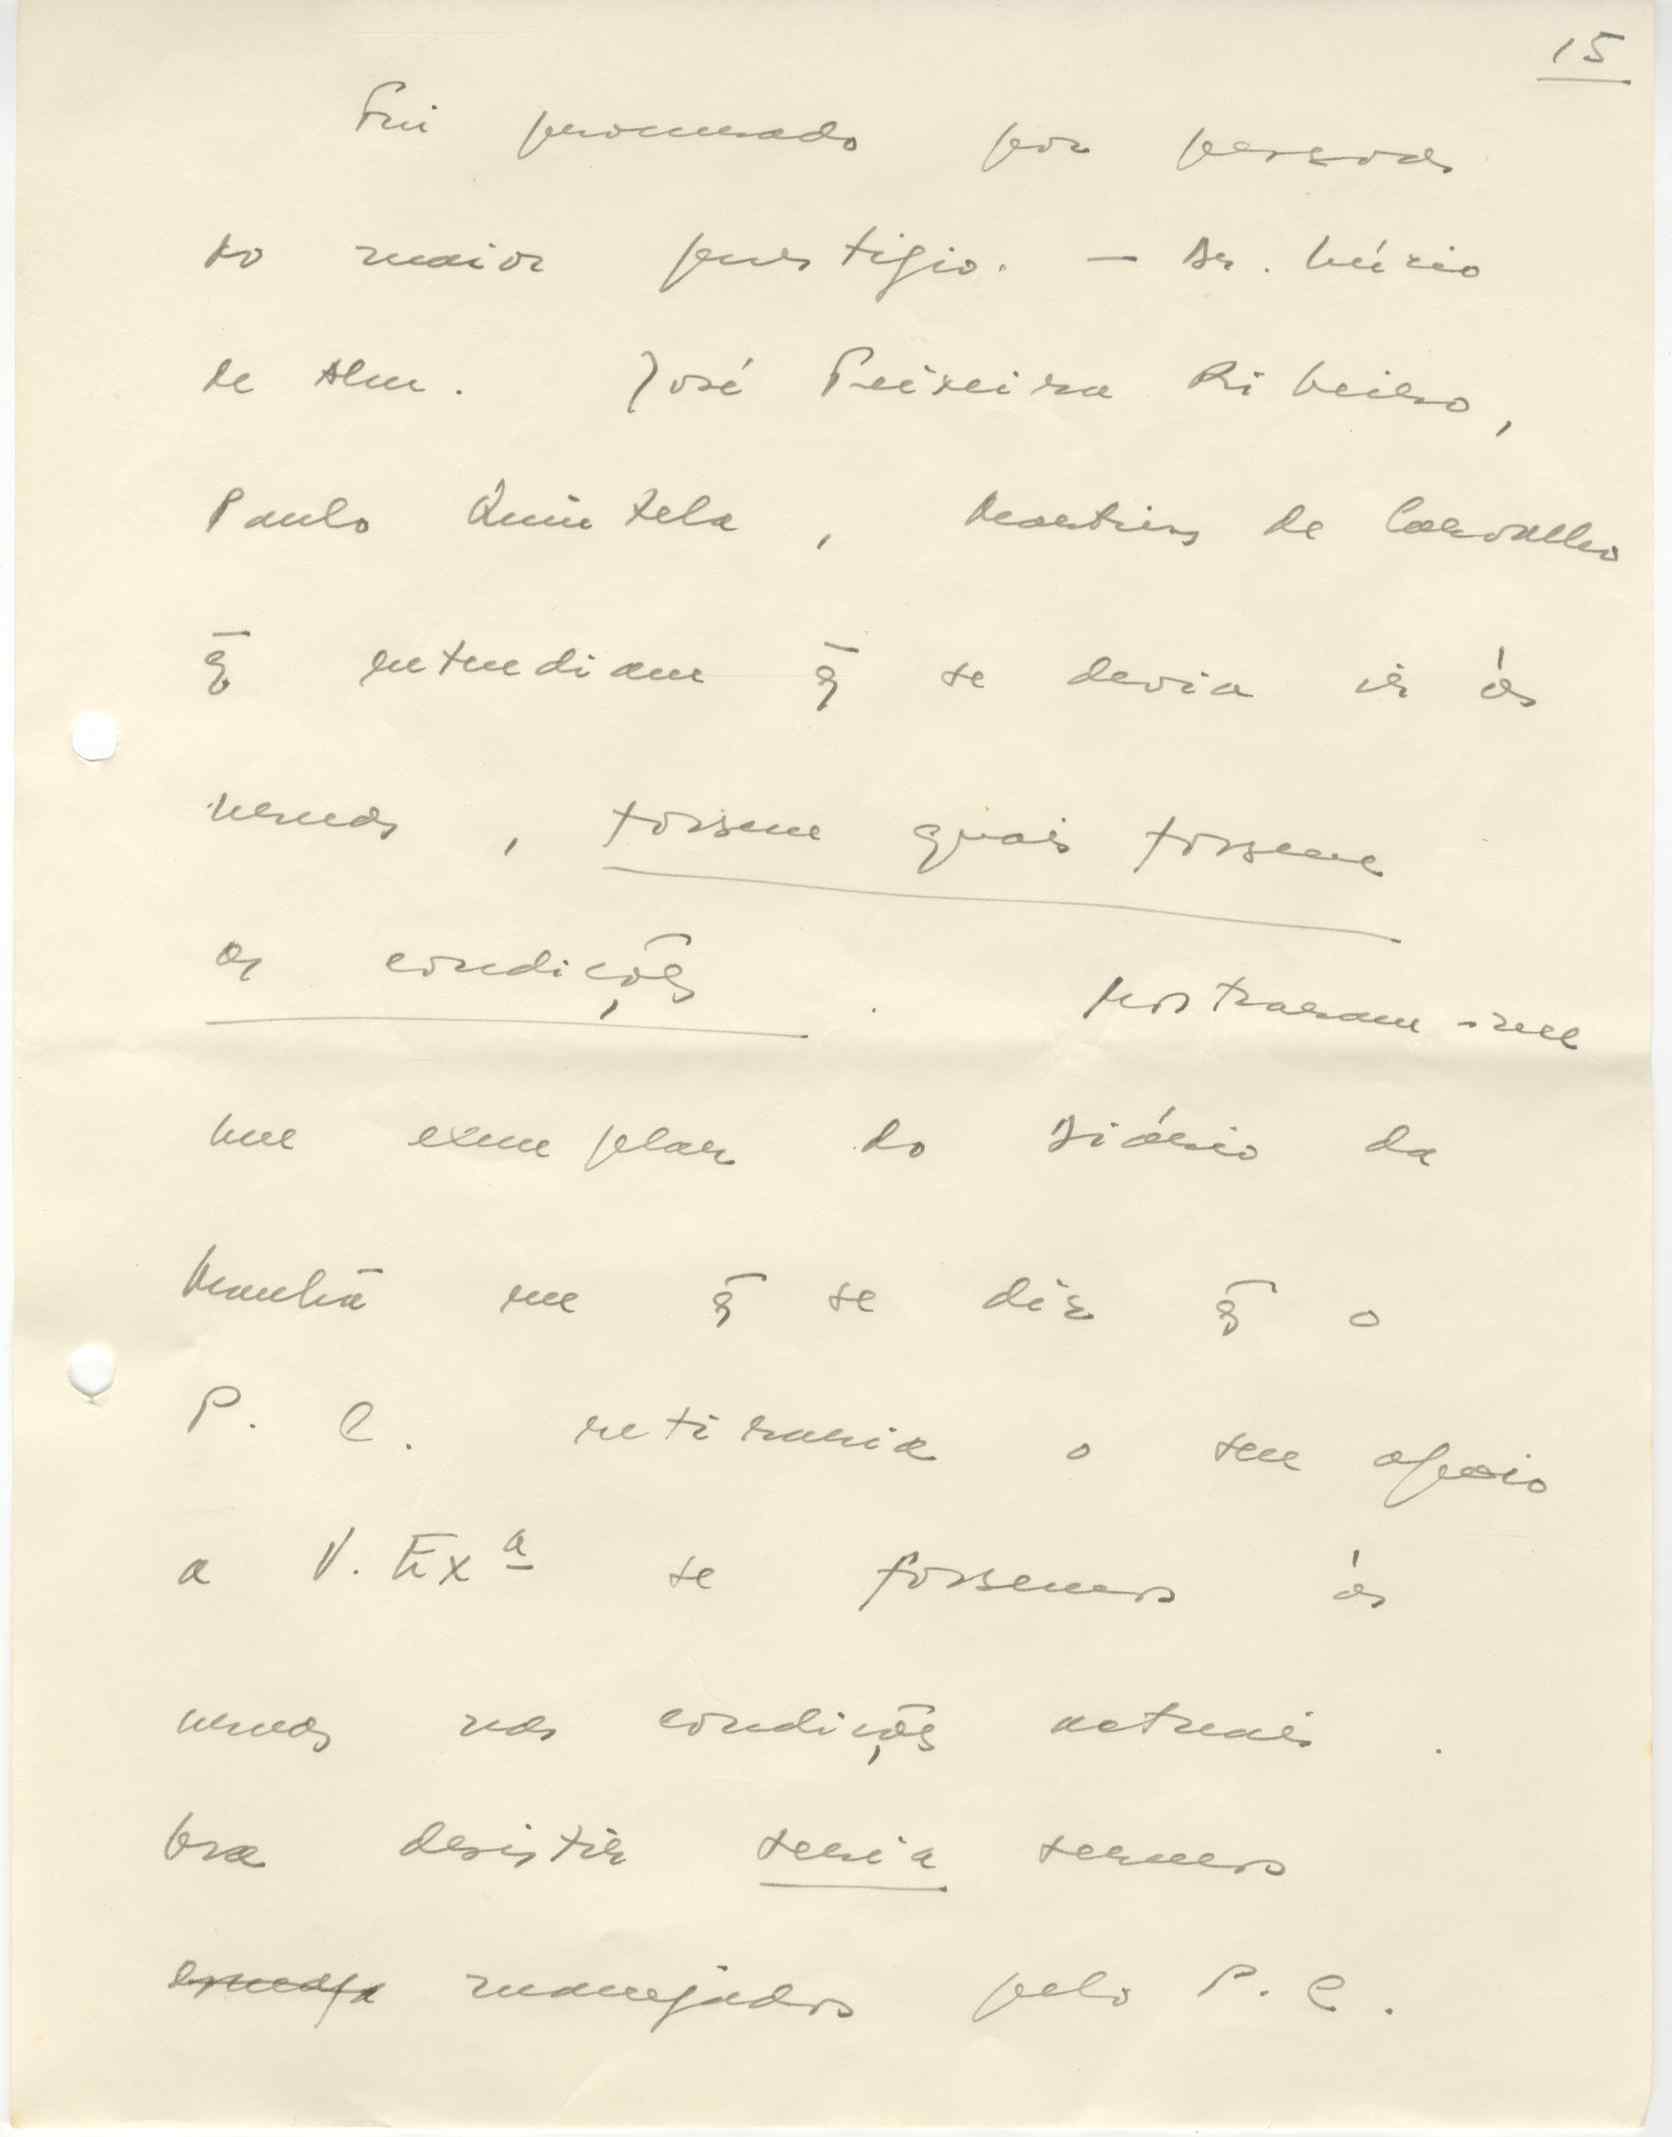 15
Fui procurado por pessoas
do maior prestigio. — Dr. Lúcio
de Alm. José Teixeira Ribeiro,
Paulo Quintela, Martins de Carvalho
q̄ entendiam q̄ se devia ir às
urnas, fossem quais fossem
as condições. Mostraram-me
um exemplar do Diário da
Manhã em q̄ se diz q̄ o
P. C. retiraria o seu apoio
a V. Exª se fossemos às
urnas nas condições actuais.
Ora desistir seria sermos
manejados pelo P. C.